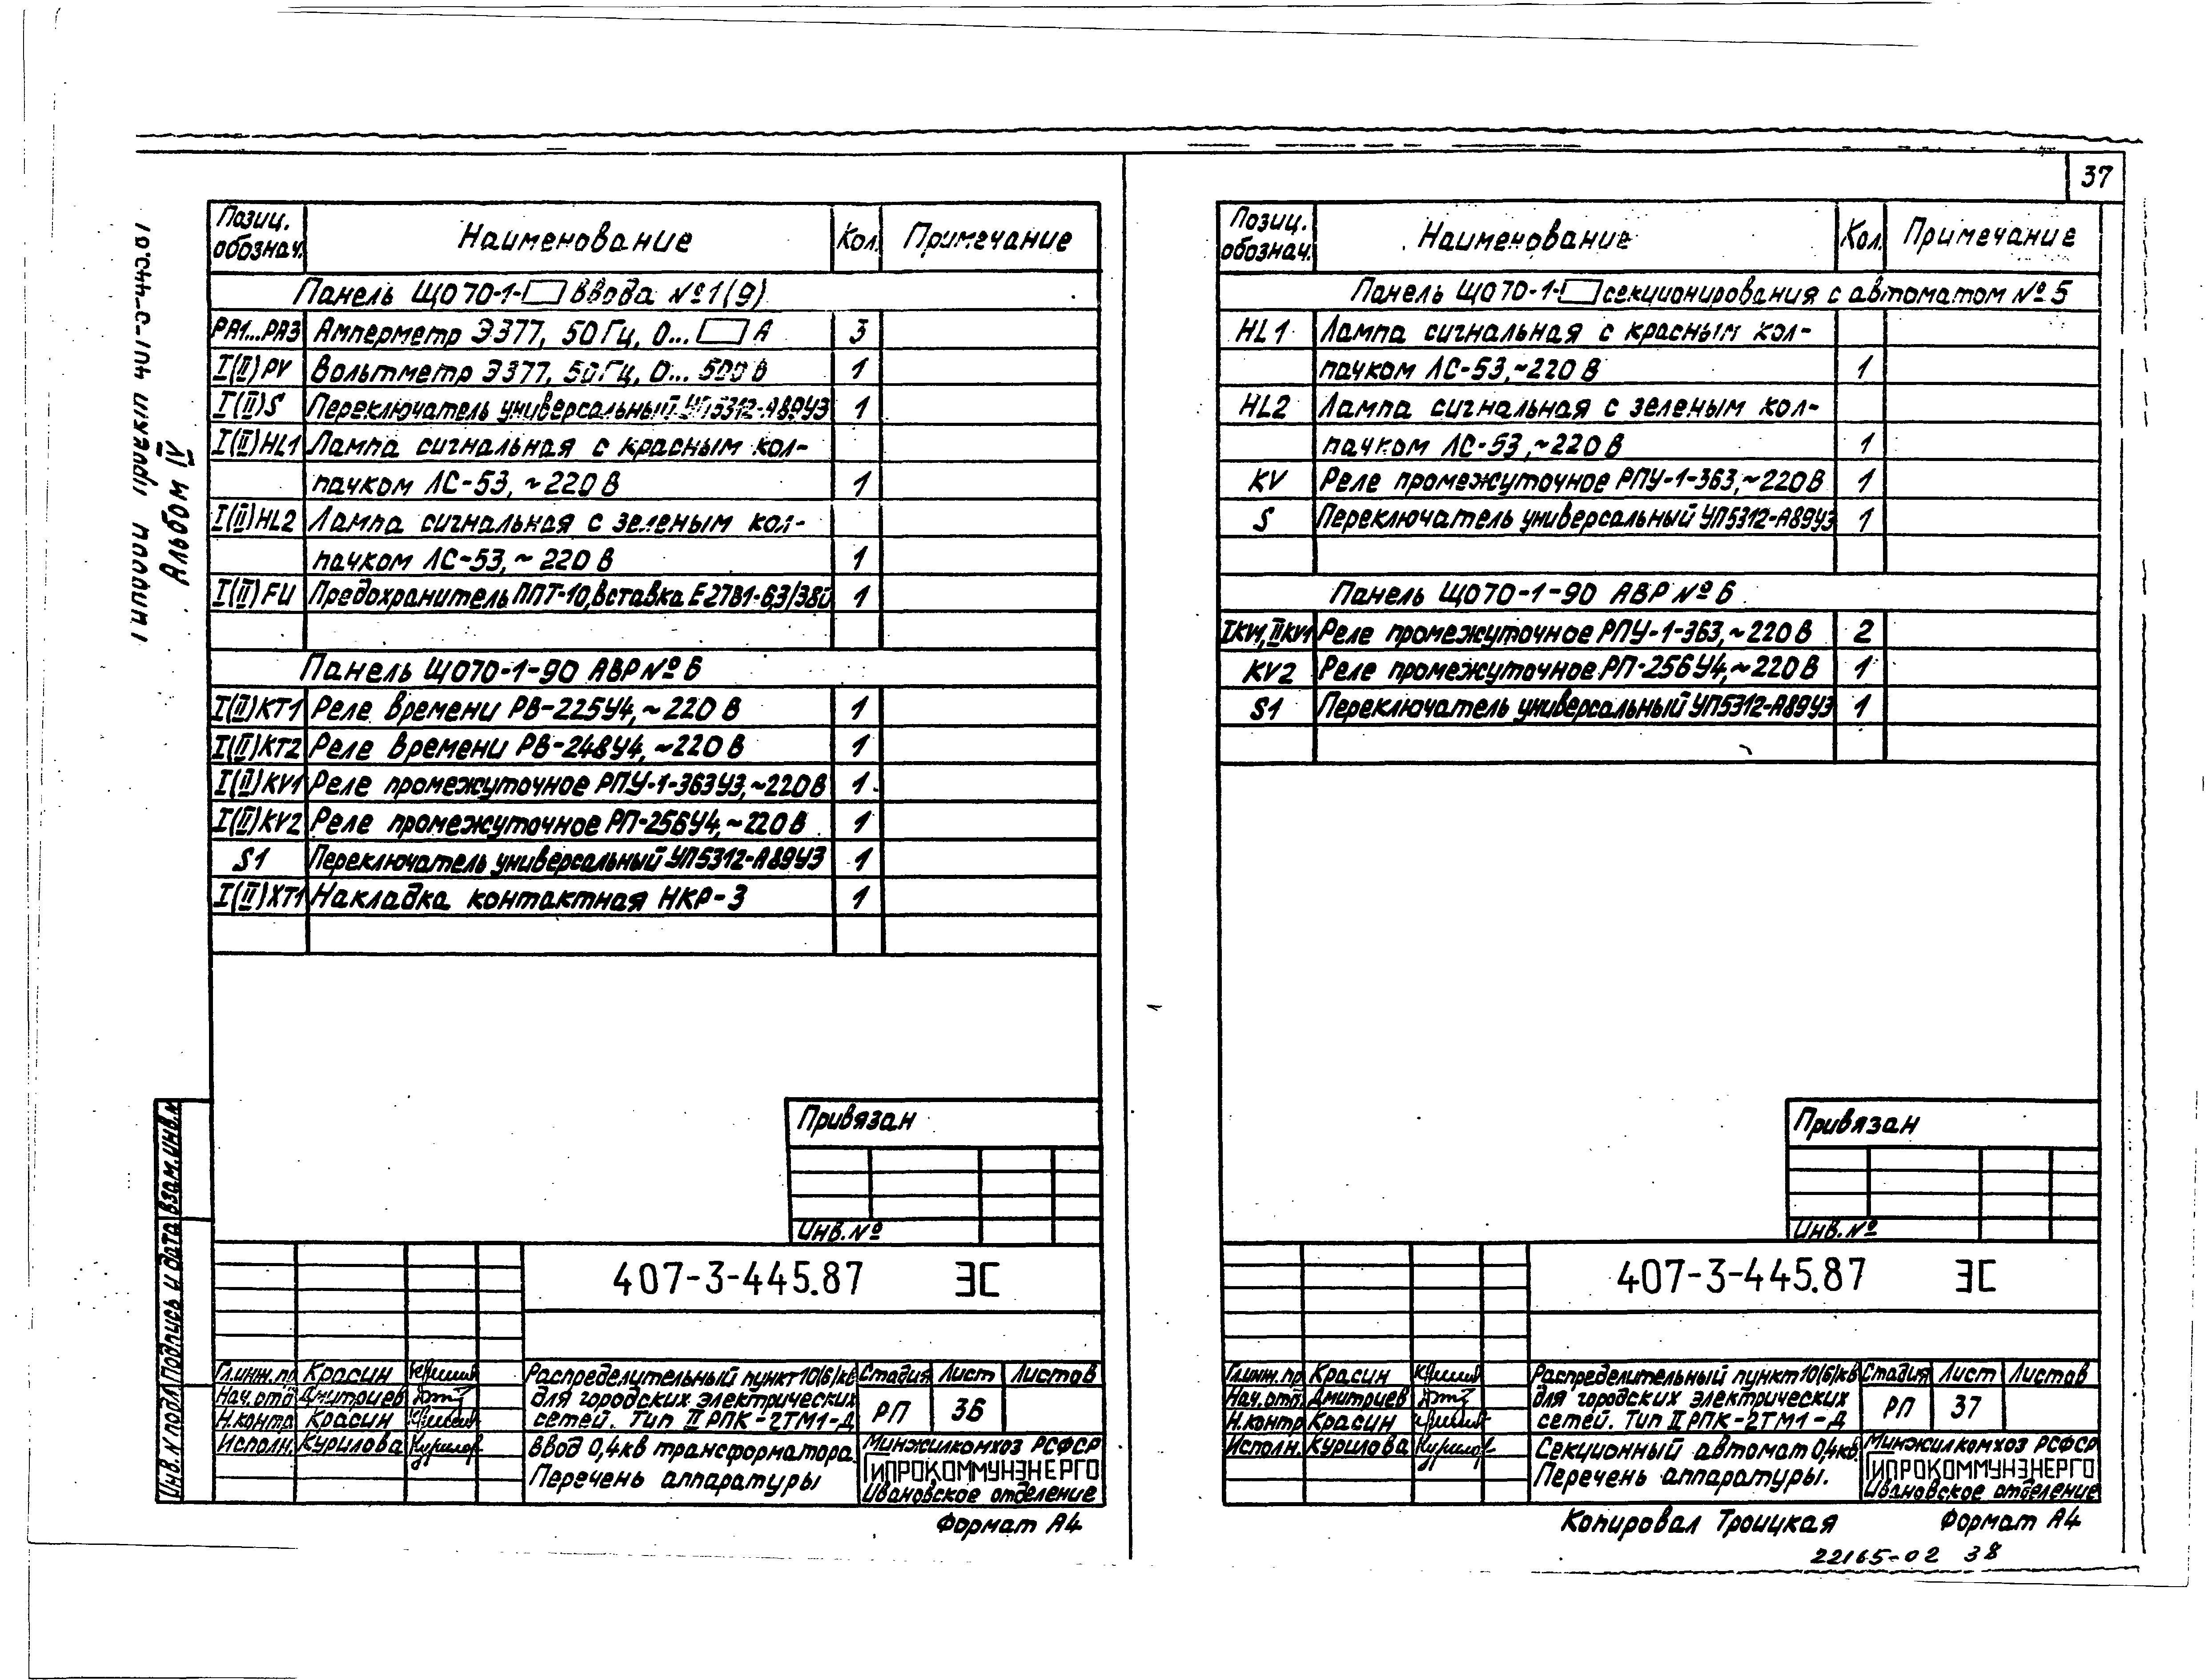 37
Типовой проект 407-3-445.87
Альбом IV
Позиц. обознач. Наименование Кол. Примечание
Панель ЩО70-1-□ ввода №1(9)
PA1...PA3 Амперметр Э377, 50Гц, 0...□ А 3
I(II)PV Вольтметр Э377, 50Гц, 0...500 В 1
I(II)S Переключатель универсальный УП5312-А89У3 1
I(II)HL1 Лампа сигнальная с красным кол-
пачком ЛС-53, ~220 В 1
I(II)HL2 Лампа сигнальная с зеленым кол-
пачком ЛС-53, ~220 В 1
I(II)FU Предохранитель ППТ-10, вставка Е2781-6,3/380 1
Панель ЩО70-1-90 АВР №6
I(II)KT1 Реле времени РВ-225У4, ~220 В 1
I(II)KT2 Реле времени РВ-248У4, ~220 В 1
I(II)KV1 Реле промежуточное РПУ-1-363У3, ~220В 1
I(II)KV2 Реле промежуточное РП-256У4, ~220 В 1
S1 Переключатель универсальный УП5312-А89У3 1
I(II)XT1 Накладка контактная НКР-3 1
Привязан
Инв.№
Взам.инв.№
Подпись и дата
Инв.№ подл.
407-3-445.87 ЭС
Гл.инж.пр Красин
Нач.отд Дмитриев
Н.контр Красин
Исполн. Курилова
Распределительный пункт 10(6)кв
для городских электрических
сетей. Тип II РПК-2ТМ1-Д
Стадия Лист Листов
РП 36
Ввод 0,4кв трансформатора.
Перечень аппаратуры
Минжилкомхоз РСФСР
ГИПРОКОММУНЭНЕРГО
Ивановское отделение
Формат А4
Позиц. обознач. Наименование Кол. Примечание
Панель ЩО70-1-□ секционирования с автоматом №5
HL1 Лампа сигнальная с красным кол-
пачком ЛС-53, ~220 В 1
HL2 Лампа сигнальная с зеленым кол-
пачком ЛС-53, ~220 В 1
KV Реле промежуточное РПУ-1-363, ~220В 1
S Переключатель универсальный УП5312-А89У3 1
Панель ЩО70-1-90 АВР №6
IKV1, IIKV1 Реле промежуточное РПУ-1-363, ~220 В 2
KV2 Реле промежуточное РП-256У4, ~220 В 1
S1 Переключатель универсальный УП5312-А89У3 1
Привязан
Инв.№
407-3-445.87 ЭС
Гл.инж.пр Красин
Нач.отд Дмитриев
Н.контр Красин
Исполн. Курилова
Распределительный пункт 10(6)кв
для городских электрических
сетей. Тип II РПК-2ТМ1-Д
Стадия Лист Листов
РП 37
Секционный автомат 0,4кв.
Перечень аппаратуры.
Минжилкомхоз РСФСР
ГИПРОКОММУНЭНЕРГО
Ивановское отделение
Копировал Троицкая Формат А4
22165-02 38